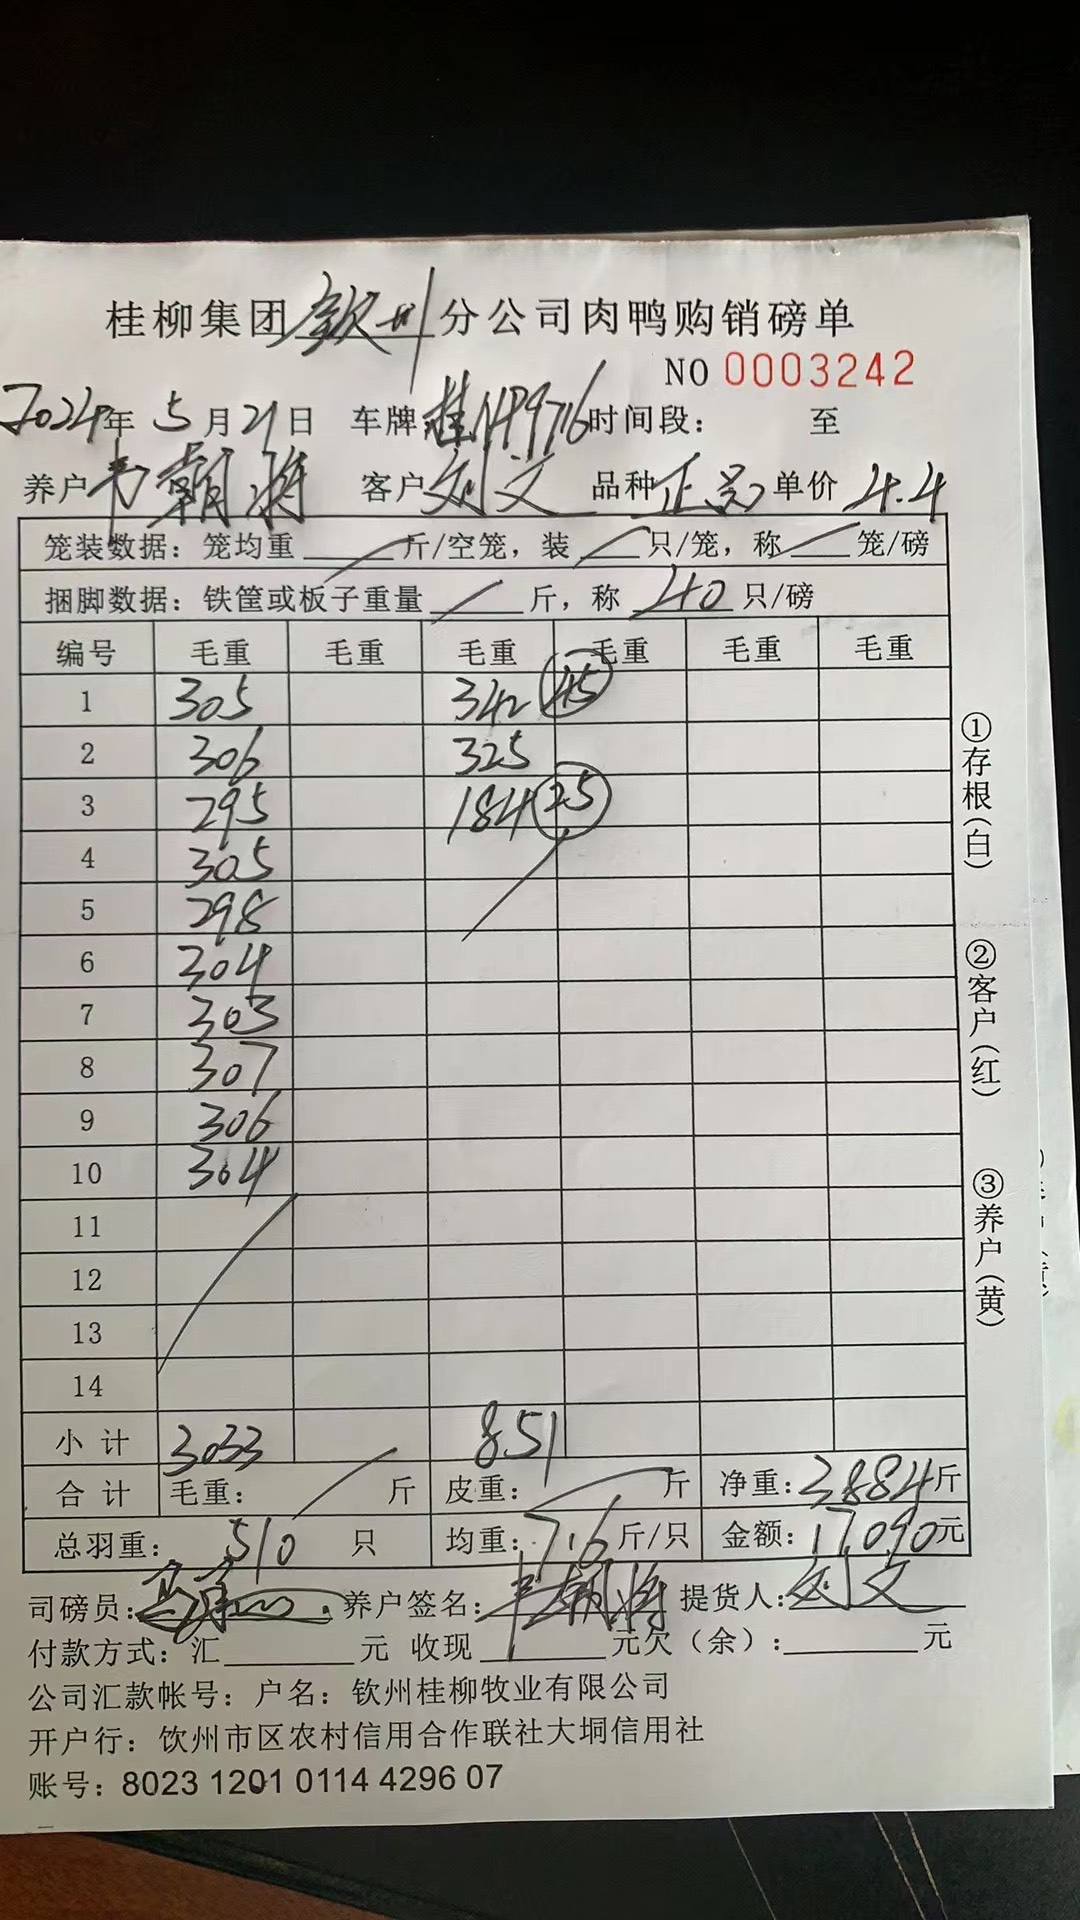 桂柳集团钦州分公司肉鸭购销磅单
NO 0003242
2024年 5月21日 车牌桂 时间段： 至
养户韦朝将 客户刘文 品种正品 单价 4.4
笼装数据：笼均重 斤/空笼，装 只/笼，称 笼/磅
捆脚数据：铁筐或板子重量 斤，称 40 只/磅
编号 毛重 毛重 毛重 毛重 毛重 毛重
1 305 342 45
2 306 325
3 295 184 25
4 305
5 298
6 304
7 303
8 307
9 306
10 304
11
12
13
14
小 计 3033 851
合 计 毛重： 斤 皮重： 斤 净重：3884斤
总羽重： 510 只 均重：7.6斤/只 金额：17090元
司磅员： 养户签名：韦朝将 提货人：刘文
付款方式：汇 元 收现 元欠（余）： 元
公司汇款帐号：户名：钦州桂柳牧业有限公司
开户行：饮州市区农村信用合作联社大垌信用社
账号：8023 1201 0114 4296 07
①存根(白)
②客户(红)
③养户(黄)